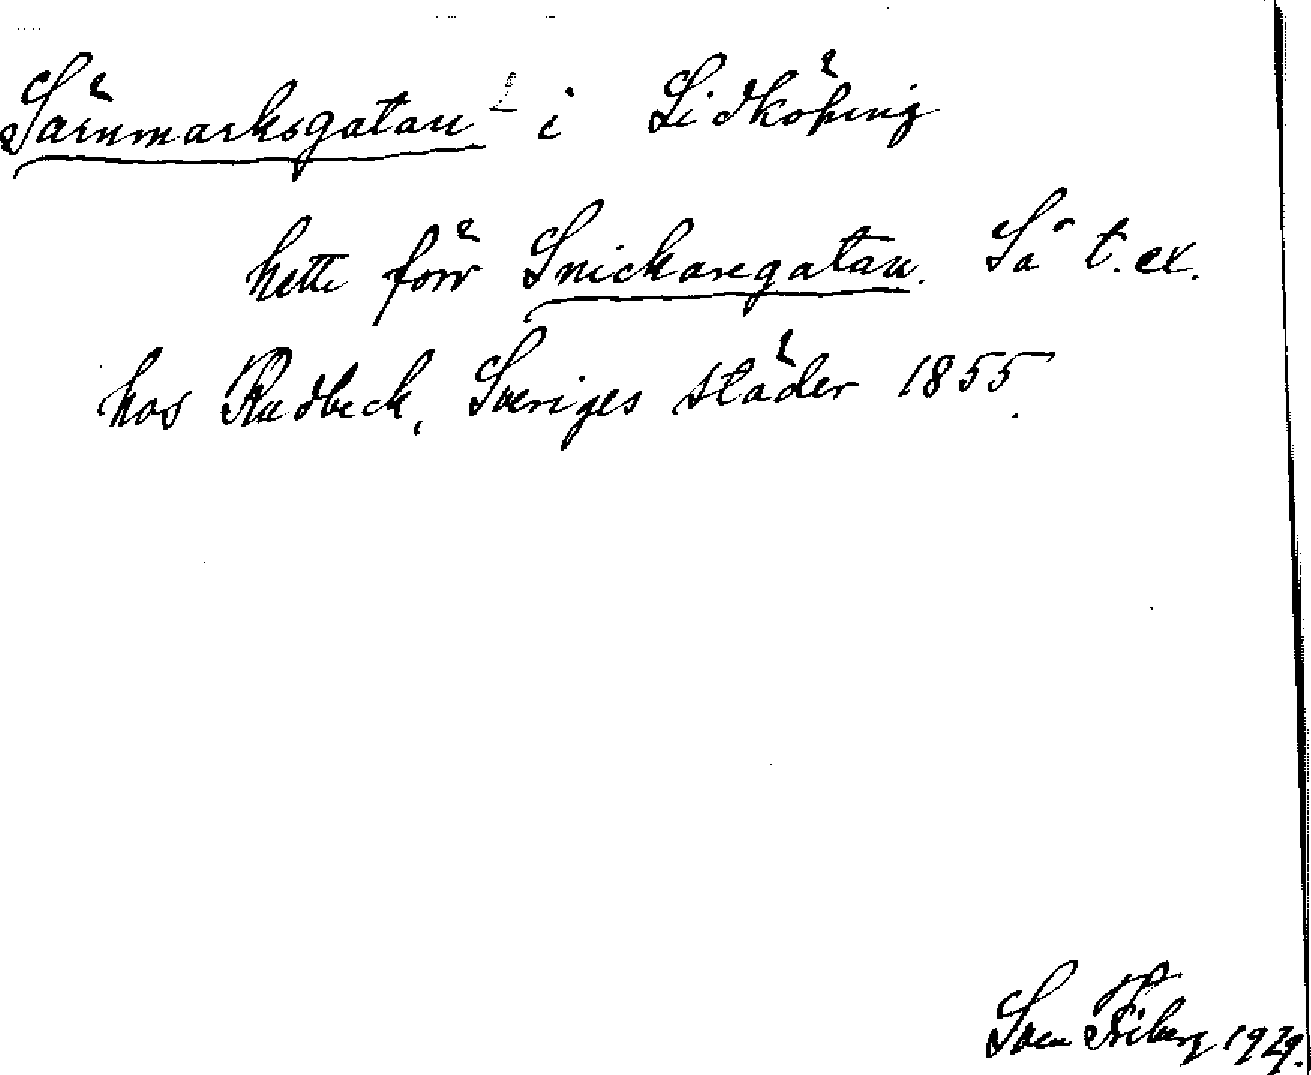 Särnmarksgatan i Lidköping
hette förr Snickaregatan. Så t. ex.
hos Rudbeck, Sveriges städer 1855.
Sven Friberg 1929.